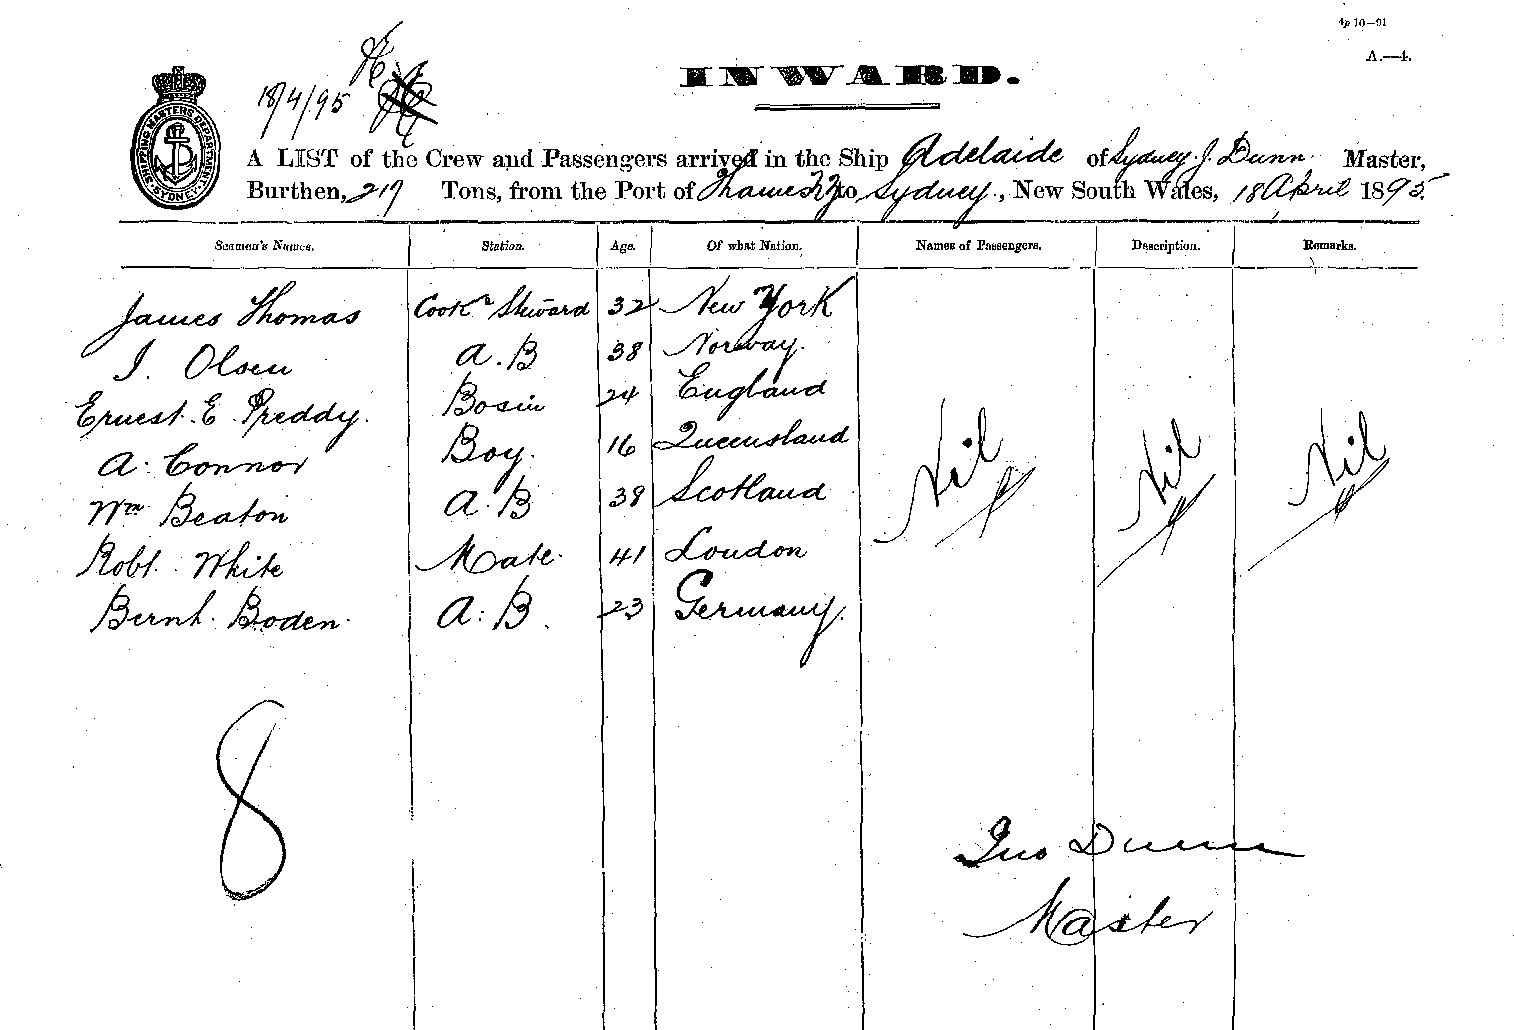 4p 10-91
A.—4.
18/4/95
INWARD.
SHIPPING MASTERS DEPARTMENT SYDNEY
A LIST of the Crew and Passengers arrived in the Ship Adelaide of Sydney J. Dunn Master,
Burthen, 217 Tons, from the Port of Thames NZ to Sydney, New South Wales, 18 April 1895.
Seamen's Names. Station. Age. Of what Nation. Names of Passengers. Description. Remarks.
James Thomas Cook & Steward 32 New York
J. Olsen A.B 38 Norway.
Ernest. E. Preddy. Bosin 24 England
A. Connor Boy. 16 Queensland
Wm Beaton A.B 38 Scotland
Robt. White Mate. 41 London
Bernh. Boden. A.B. 23 Germany.
Nil Nil Nil
8
Jno Dunn
Master